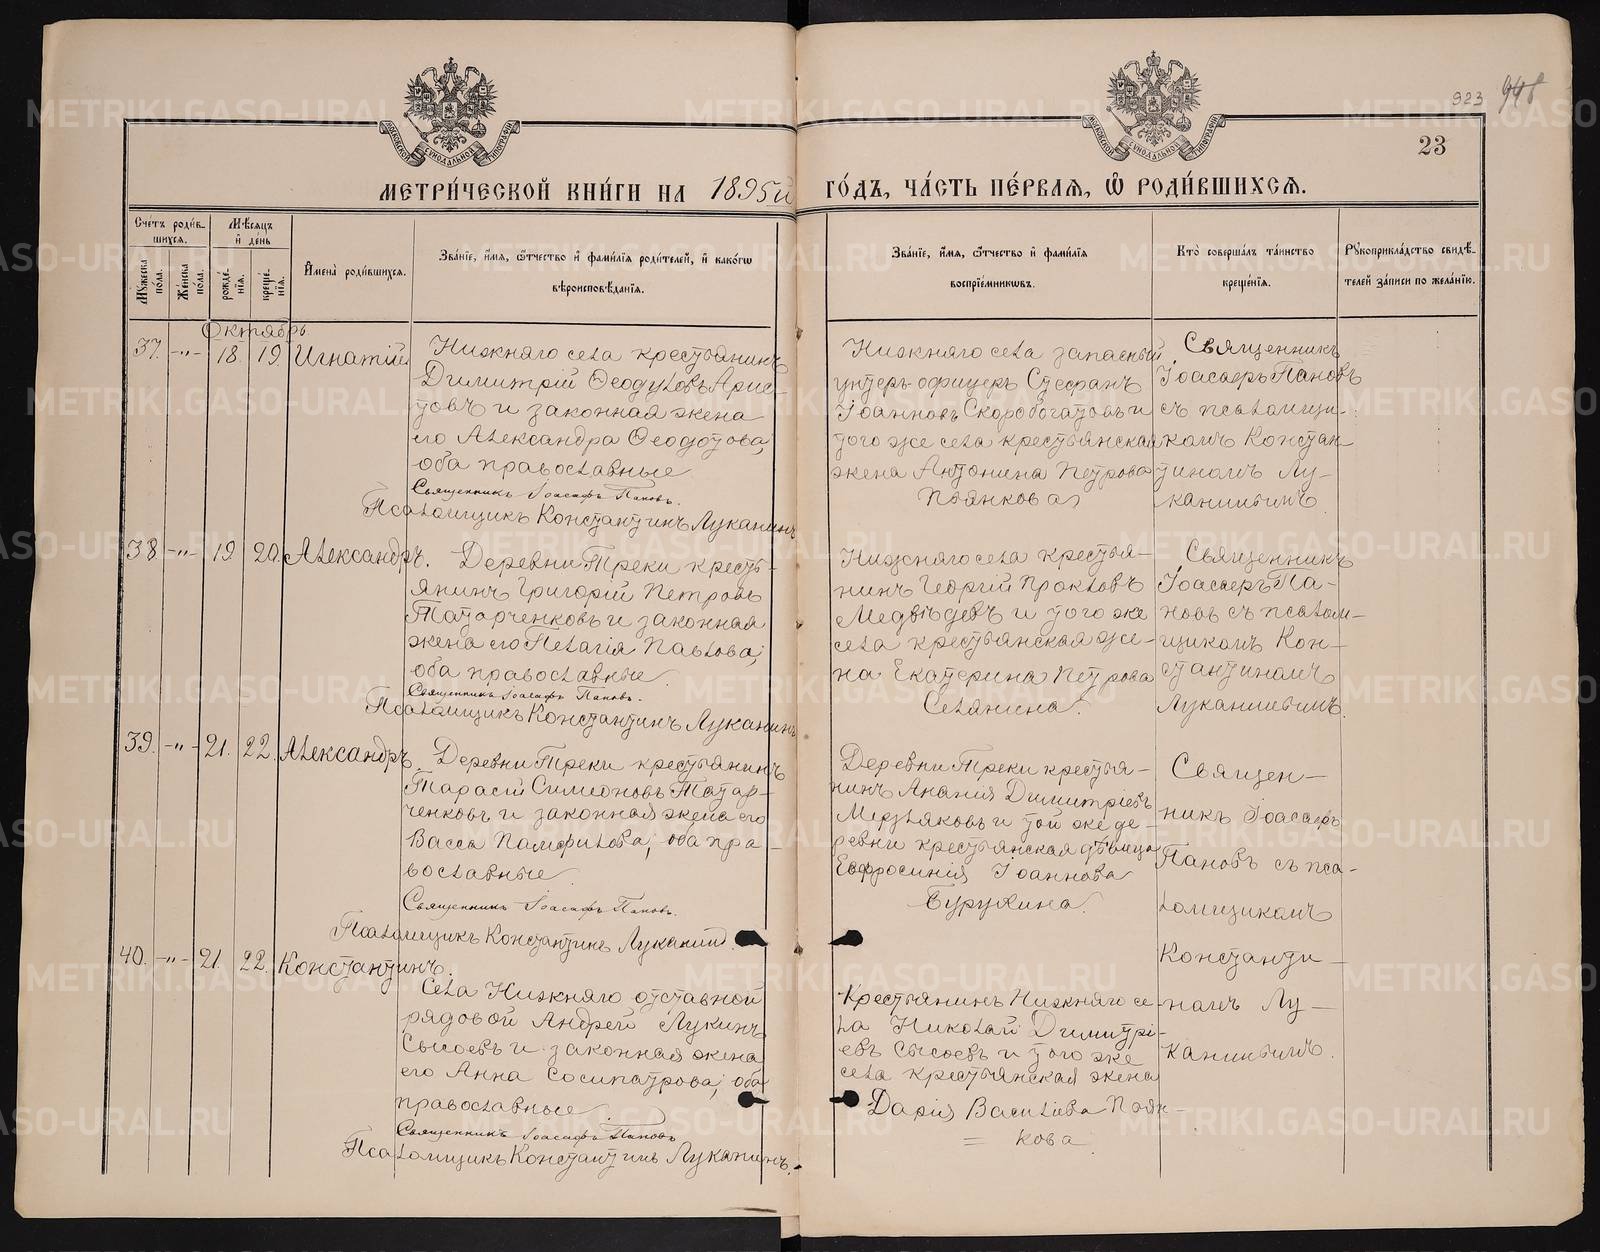 923 948
МОСКОВСКОЙ СѴНОДАЛЬНОЙ ТИПОГРАФІИ
МОСКОВСКОЙ СѴНОДАЛЬНОЙ ТИПОГРАФІИ
23
МЕТРИ́ЧЕСКОЙ КНИ́ГИ НА 1895й ГО́ДЪ, ЧА́СТЬ ПЕ́РВАЯ, Ѽ РОДИ́ВШИХСЯ.
Сче́тъ роди́в-
шихся.
Мꙋ́жеска по́ла.
Же́нска по́ла.
Мѣ́сяцъ
и҆ де́нь
рожде́нїя.
креще́нїя.
И҆мена̀ роди́вшихся.
Зва́нїе, и҆́мя, ѻ҆́тчество и҆ фами́лїя роди́телей, и҆ како́гѡ
вѣроисповѣ́данїя.
Зва́нїе, и҆́мя, ѻ҆́тчество и҆ фами́лїя
воспрїе́мникѡвъ.
Кто̀ соверша́лъ та́инство
креще́нїя.
Рꙋкоприкла́дство свидѣ́-
телей за́писи по жела́нїю.
Октябрь
37. -"- 18. 19. Игнатій
Нижняго села крестьянинъ
Димитрій Ѳеодуловъ Арис-
товъ и законная жена
его Александра Ѳеодотова,
оба православные
Священникъ Іоасафъ Пановъ.
Псаломщикъ Константинъ Луканинъ
Нижняго села запасный
унтеръ-офицеръ Стефанъ
Іоанновъ Скоробогатовъ и
того же села крестьянская
жена Антонина Петрова
Пьянкова
Священникъ
Іоасафъ Пановъ
съ псаломщи-
комъ Констан-
тиномъ Лу-
канинымъ
38. -"- 19 20. Александръ.
Деревни Треки кресть-
янинъ Григорій Петровъ
Татарченковъ и законная
жена его Пелагія Павлова;
оба православные.
Священникъ Іоасафъ Пановъ.
Псаломщикъ Константинъ Луканинъ
Нижняго села крестья-
нинъ Георгій Прокловъ
Медвѣдевъ и того же
села крестьянская же-
на Екатерина Петрова
Селянина.
Священникъ
Іоасафъ Па-
новъ съ псалом-
щикомъ Кон-
стантиномъ
Луканинымъ.
39. -"- 21. 22. Александръ
Деревни Треки крестьянинъ
Тарасій Симеоновъ Татар-
ченковъ и законная жена его
Васса Памфилова; оба пра-
вославные
Священникъ Іоасафъ Пановъ.
Псаломщикъ Константинъ Луканинъ.
Деревни Треки крестья-
нинъ Ананія Димитріевъ
Мерзляковъ и той же де-
ревни крестьянская дѣвица
Евфросинія Іоаннова
Бурухина.
Священ-
никъ Іоасафъ
Пановъ съ пса-
ломщикомъ
Константи-
номъ Лу-
канинымъ.
40. -"- 21. 22. Константинъ.
Села Нижняго отставной
рядовой Андрей Лукинъ
Сысоевъ и законная жена
его Анна Сосипатрова; оба
православные.
Священникъ Іоасафъ Пановъ
Псаломщикъ Константинъ Луканинъ.
Крестьянинъ Нижняго се-
ла Николай Димитрі-
евъ Сысоевъ и того же
села крестьянская жена
Дарія Васильева Пьян-
= кова
METRIKI.GASO-URAL.RU